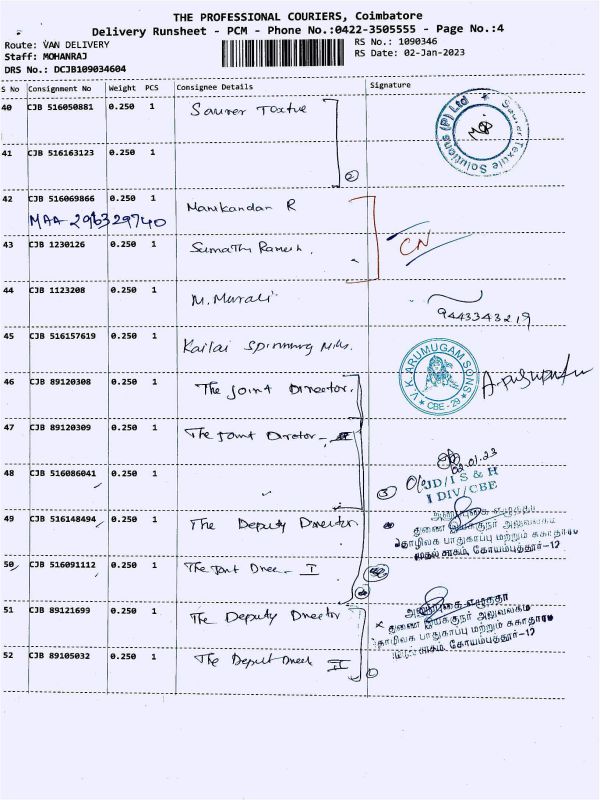 THE PROFESSIONAL COURIERS, Coimbatore
Delivery Runsheet - PCM - Phone No.:0422-3505555 - Page No.:4
Route: VAN DELIVERY
Staff: MOHANRAJ
DRS No.: DCJB109034604
RS No.: 1090346
RS Date: 02-Jan-2023
S No Consignment No Weight PCS Consignee Details Signature
40 CJB 516050881 0.250 1 Saurer Textile
Saurer Textile Solutions (P) Ltd
41 CJB 516163123 0.250 1
2
42 CJB 516069866 0.250 1 Manikandan R
MAA 296329740
CN
43 CJB 1230126 0.250 1 Sumathi Ramesh.
44 CJB 1123208 0.250 1 M. Murali
9443343219
45 CJB 516157619 0.250 1 Kailai Spinning Mills.
V.K. ARUMUGAM SONS
CBE - 29
46 CJB 89120308 0.250 1 The Joint Director.
47 CJB 89120309 0.250 1 The Joint Director -
02.01.23
48 CJB 516086041 0.250 1
JD/I S & H
I DIV/CBE
49 CJB 516148494 0.250 1 The Deputy Director
துணை இயக்குநர் அலுவலகம்
தொழிலக பாதுகாப்பு மற்றும் சுகாதாரம்
முதல் சரகம், கோயம்புத்தூர்-12
50 CJB 516091112 0.250 1 The Joint Direc - I
51 CJB 89121699 0.250 1 The Deputy Director
துணை இயக்குநர் அலுவலகம்
தொழிலக பாதுகாப்பு மற்றும் சுகாதாரம்
சரகம், கோயம்புத்தூர்-12
52 CJB 89105032 0.250 1 The Deput Direct II